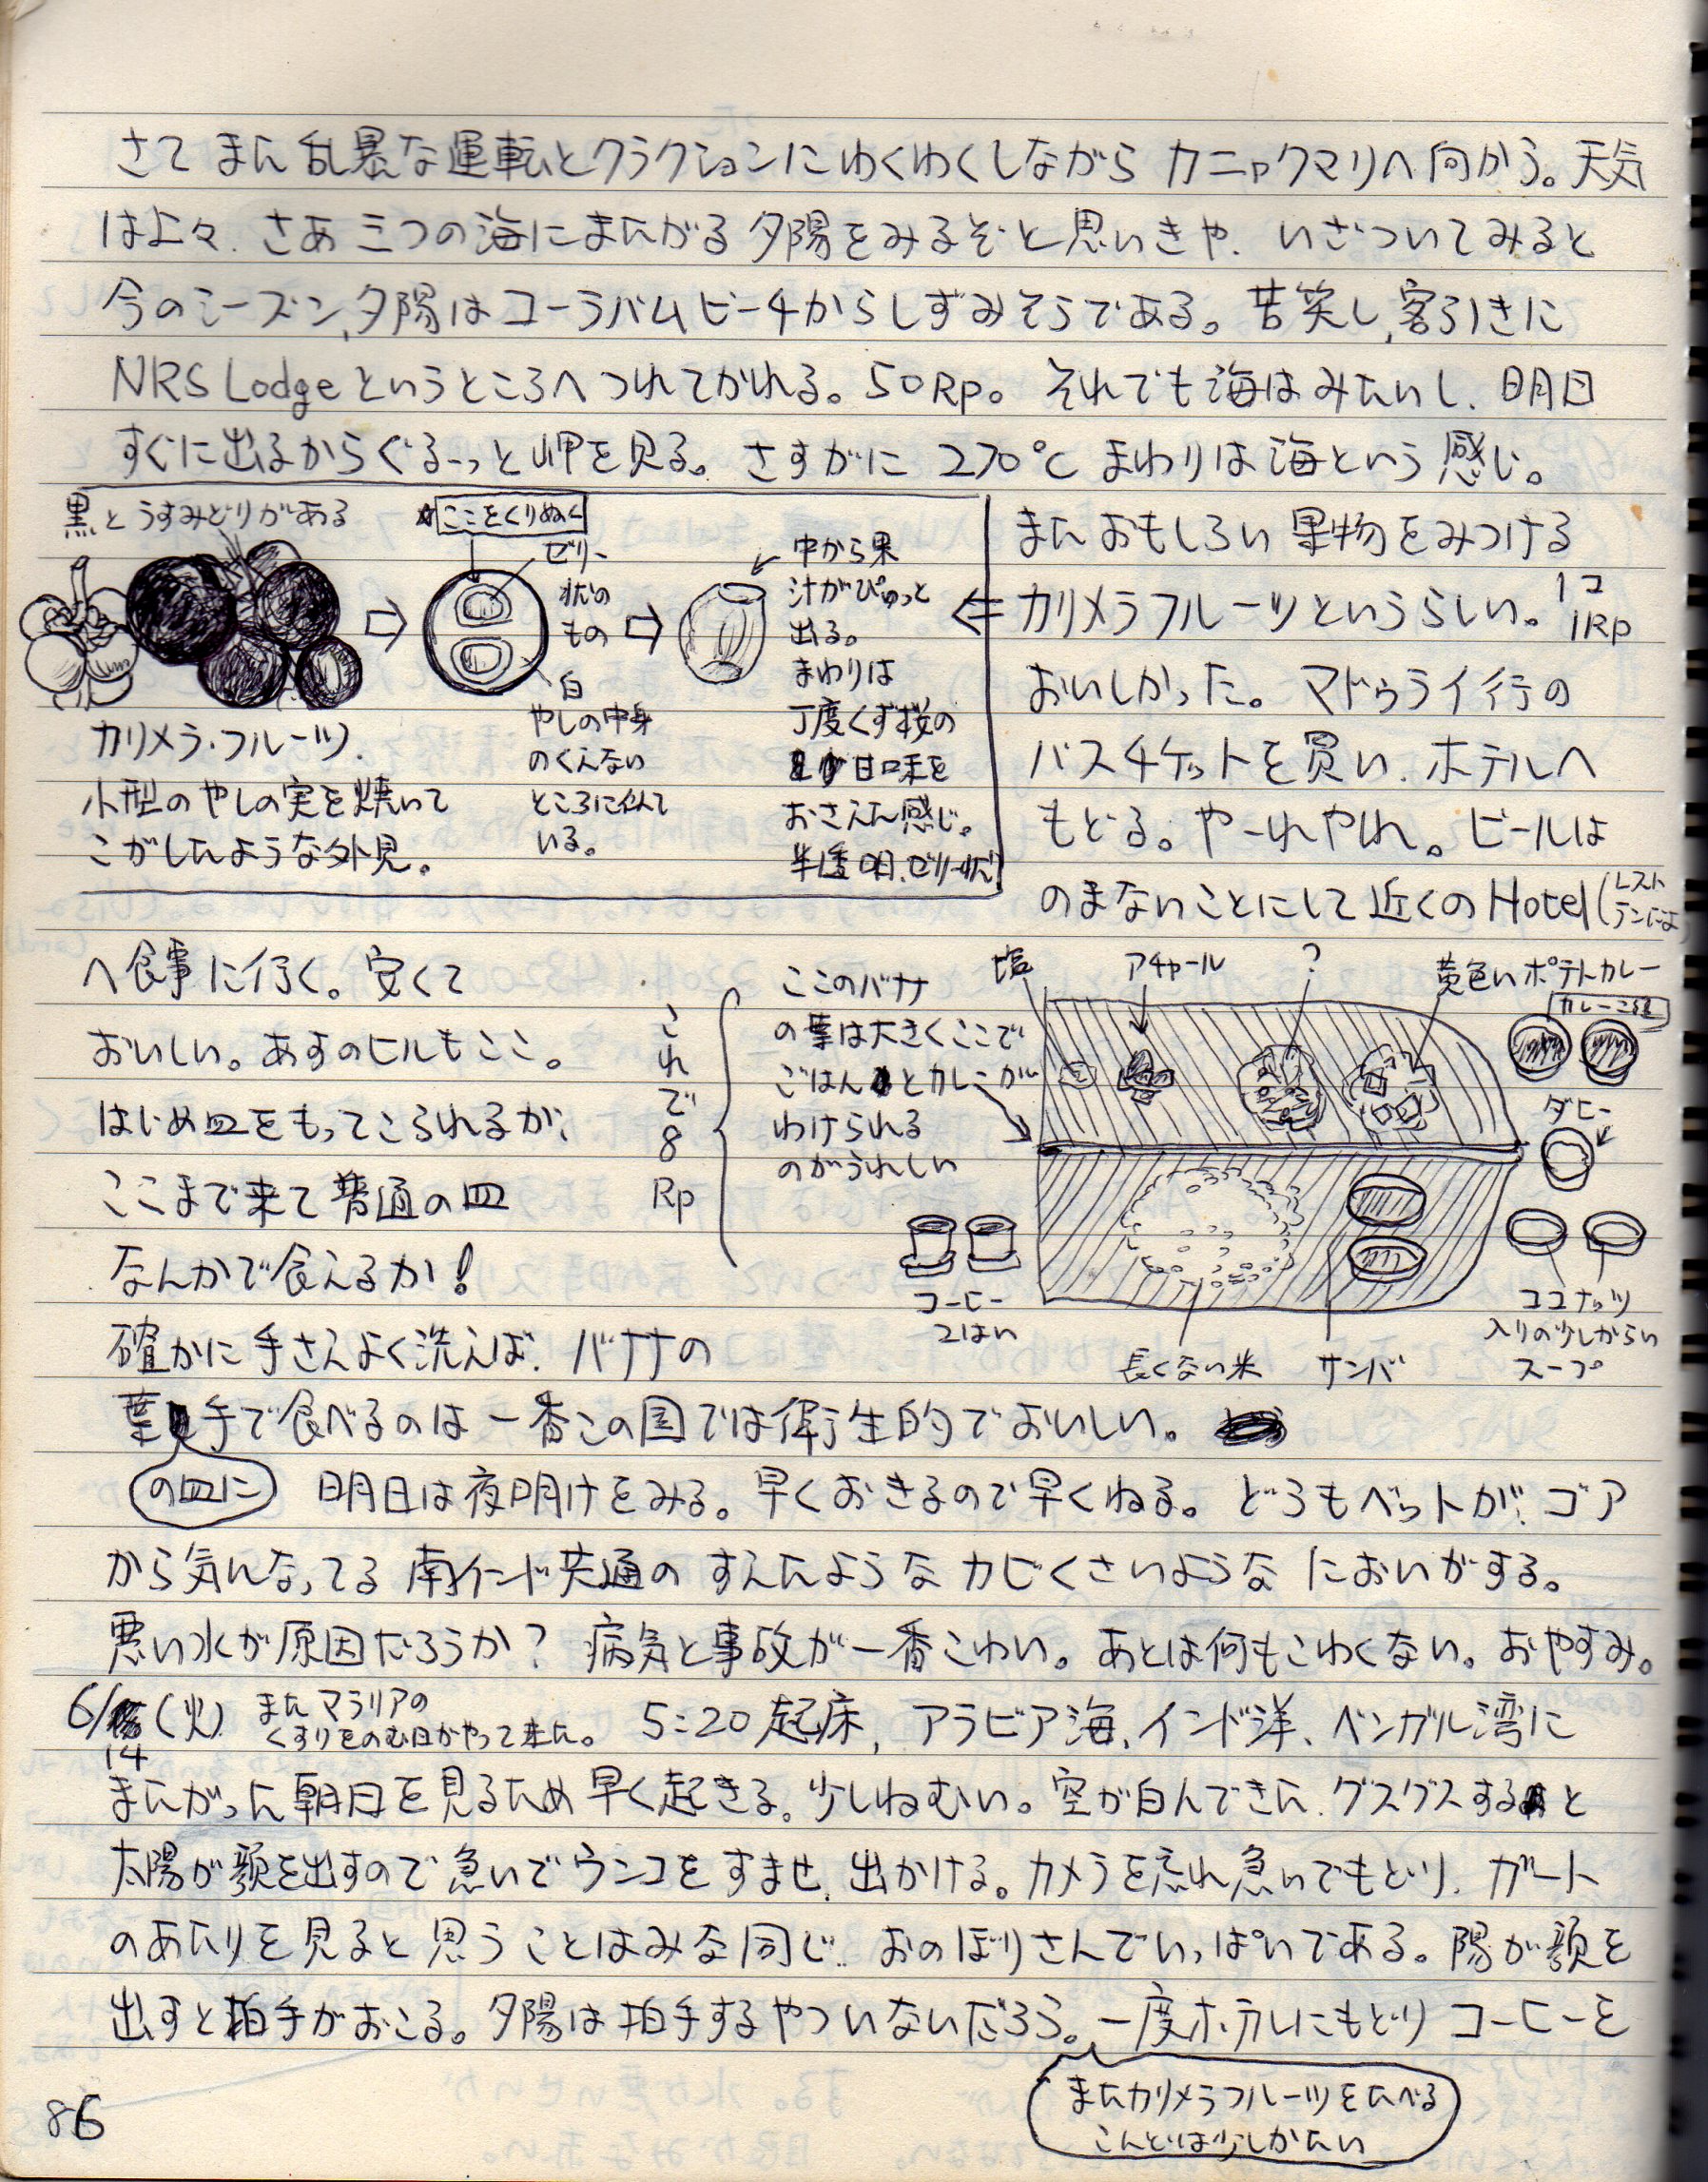 さて また 乱暴な運転とクラクションにわくわくしながら カニャクマリへ向かう。天気
は上々、さあ 三つの海にまたがる 夕陽をみるぞと思いきや、いざついてみると
今のシーズン、夕陽はコーラバムビーチからしずみそうである。苦笑し、客引きに
NRS Lodge というところへつれてかれる。50Rp。それでも海はみたいし、明日
すぐに出るからぐるーっと岬を見る。さすがに 270℃ まわりは海という感じ。
黒とうすみどりがある
ここをくりぬく
ゼリー
状の
もの
白
やしの中身
のくえない
ところに似て
いる。
中から果
汁がぴゅっと
出る。
まわりは
丁度くず桜の
甘味を
おさえた感じ。
半透明、ゼリー状
カリメラ・フルーツ.
小型のやしの実を焼いて
こがしたような外見。
またおもしろい果物をみつける
カリメラフルーツというらしい。1コ
1Rp
おいしかった。マドゥライ行の
バスチケットを買い、ホテルへ
もどる。やーれやれ。ビールは
のまないことにして近くのHotel(レスト
ランによ
へ食事に行く。安くて
おいしい。あすのヒルもここ。
はじめ皿をもってこられるが、
ここまで来て普通の皿
なんかで食えるか!
確かに手さえよく洗えば、バナナの
これで8Rp
ここのバナナ
の葉は大きくここで
ごはんとカレーが
わけられる
のがうれしい
塩
アチャール
?
黄色いポテトカレー
カレー2種
ダヒー
コーヒー
2はい
長くない米
サンバ
ココナッツ
入りの少しからい
スープ
葉手で食べるのは一番この国では衛生的でおいしい。
の皿に 明日は夜明けをみる。早くおきるので早くねる。どうもベットが、ゴア
から気んなってる 南インド共通の すえたような カビくさいような においがする。
悪い水が原因だろうか? 病気と事故が一番こわい。あとは何もこわくない。おやすみ。
6/14(火) またマラリアの
くすりをのむ日がやって来た。
5:20起床, アラビア海、インド洋、ベンガル湾に
またがった朝日を見るため早く起きる。少しねむい。空が白んできた、グズグズすると
太陽が顔を出すので急いでウンコをすませ、出かける。カメラを忘れ急いでもどり、ガート
のあたりを見ると思うことはみな同じ、おのぼりさんでいっぱいである。陽が顔を
出すと拍手がおこる。夕陽は拍手するやついないだろう。一度ホテルにもどり コーヒーを
またカリメラフルーツをたべる
こんどは少しかたい
86